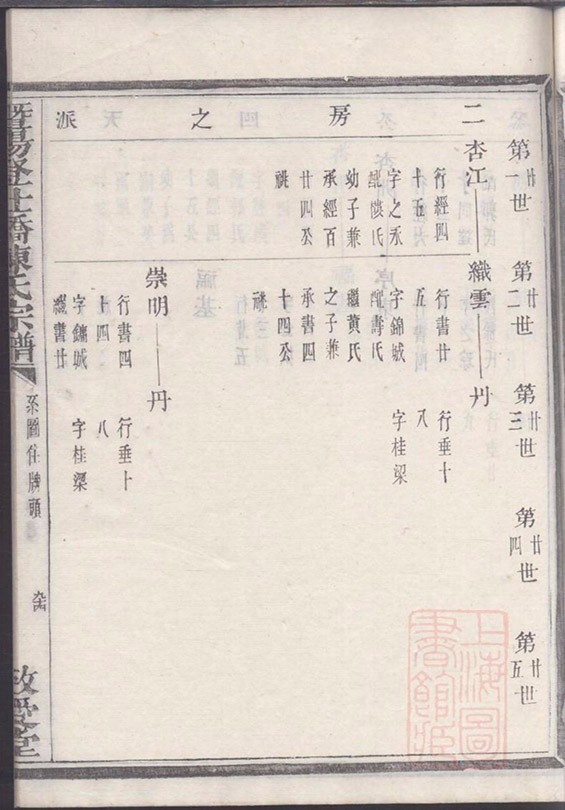 二房之派
第廿一世
第廿二世
第廿三世
第廿四世
第廿五世
杏江——織雲——丹
行經四
十五
字之永
配樓氏
幼子兼
承經百
廿四公
祧
行書廿
五
字錦城
配壽氏
繼黃氏
之子兼
承書四
十四公
祧
行垂十
八
字桂梁
崇明——丹
行書四
十四
字鏞城
繼書廿
行垂十
八
字桂梁
陳氏宗譜
系圖住牌頭
敬愛堂
上海圖書館藏